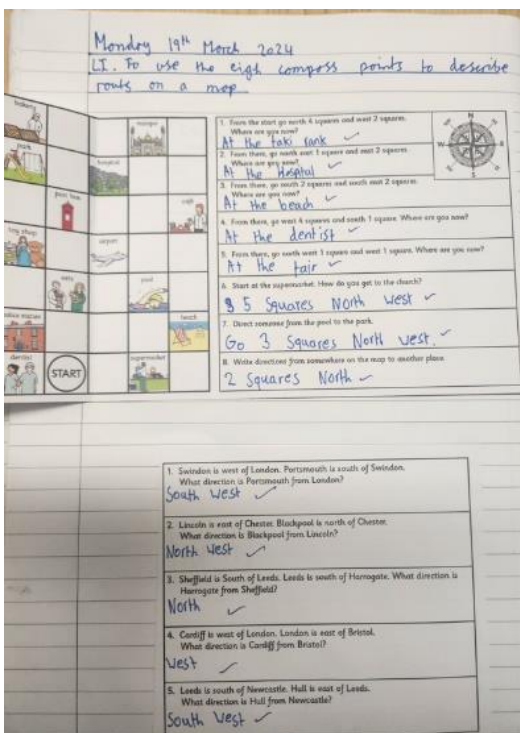 Monday 19th March 2024
LI. To use the eigh compass points to describe
routs on a map
bakery
mosque
park
hospital
post box
café
toy shop
airport
vets
pool
police station
beach
dentist
START
supermarket
N
W
E
S
1. From the start go north 4 squares and west 2 squares.
Where are you now?
At the taxi rank
2. From there, go north east 1 square and east 2 squares.
Where are you now?
At the Hospital
3. From there, go south 2 squares and south east 2 squares.
Where are you now?
At the beach
4. From there, go west 4 squares and south 1 square. Where are you now?
At the dentist
5. From there, go north west 1 square and west 1 square. Where are you now?
At the fair
6. Start at the supermarket. How do you get to the church?
5 Squares North West
7. Direct someone from the pool to the park.
Go 3 Squares North west.
8. Write directions from somewhere on the map to another place.
2 Squares North
1. Swindon is west of London. Portsmouth is south of Swindon.
What direction is Portsmouth from London?
South West
2. Lincoln is east of Chester. Blackpool is north of Chester.
What direction is Blackpool from Lincoln?
North West
3. Sheffield is South of Leeds. Leeds is south of Harrogate. What direction is
Harrogate from Sheffield?
North
4. Cardiff is west of London. London is east of Bristol.
What direction is Cardiff from Bristol?
West
5. Leeds is south of Newcastle. Hull is east of Leeds.
What direction is Hull from Newcastle?
South West